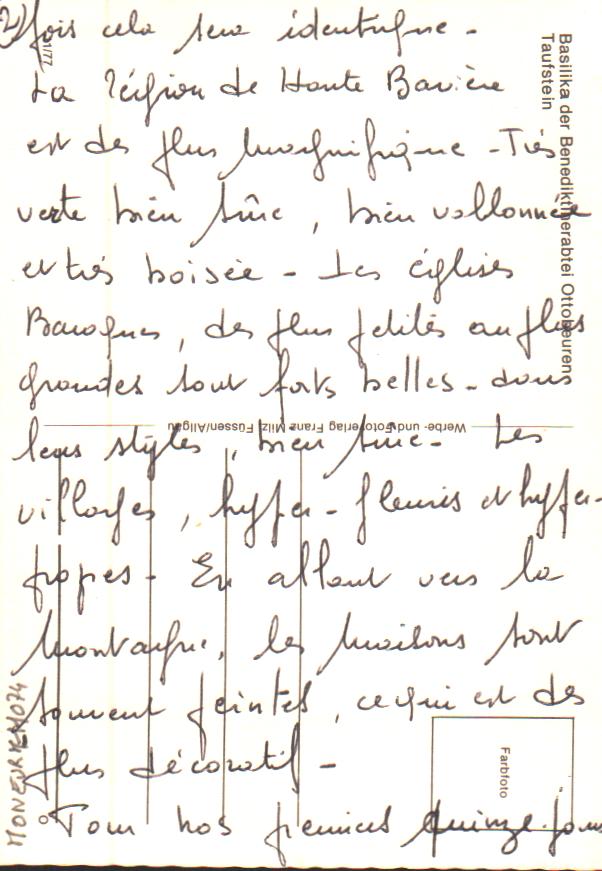 2) fois cela sera identique -
La Région de Haute Bavière
est des plus magnifique - Très
verte bien sûr, bien vallonnée
et très boisée - Les églises
Baroques, des plus petites aux plus
grandes sont forts belles - dans
leurs styles, bien sûr - Les
villages, hyper - fleuris et hyper -
propres - En allant vers la
Montagne, les maisons sont
souvent peintes, ce qui est des
plus décoratif -
Pour nos premiers quinze jours
Basilika der Benediktinerabtei Ottobeuren
Taufstein
1/77
Werbe- und Fotoverlag Franz Milz, Füssen/Allgäu
Farbfoto